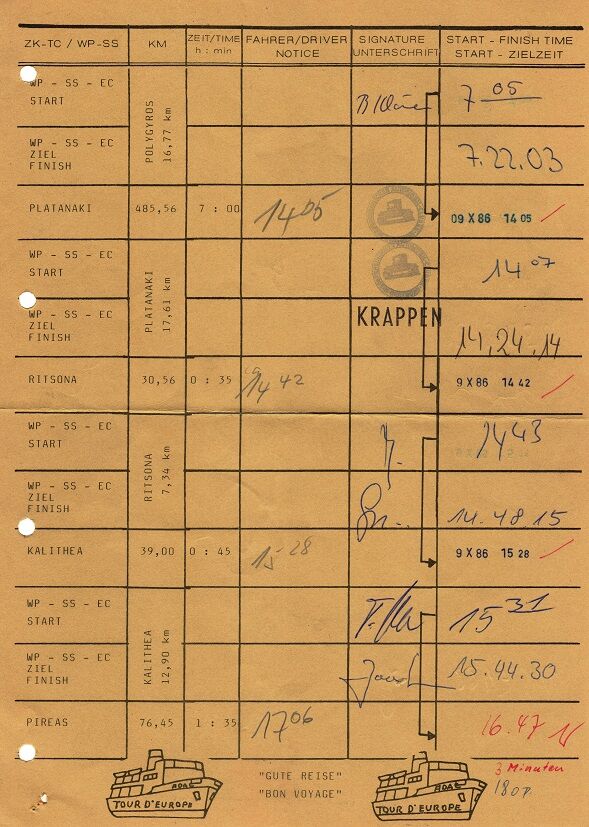 ZK-TC / WP-SS KM ZEIT/TIME FAHRER/DRIVER SIGNATURE START - FINISH TIME
h : min NOTICE UNTERSCHRIFT START - ZIELZEIT
WP - SS - EC
START
POLYGYROS
16,77 km
7 05
WP - SS - EC
ZIEL
FINISH
7.22.03
PLATANAKI 485,56 7 : 00 14 05 09 X 86 14 05
WP - SS - EC
START
PLATANAKI
17,61 km
14 07
WP - SS - EC
ZIEL
FINISH
KRAPPEN
14,24.14
RITSONA 30,56 0 : 35 14 42 9 X 86 14 42
WP - SS - EC
START
RITSONA
7,34 km
14 43
WP - SS - EC
ZIEL
FINISH
14.48.15
KALITHEA 39,00 0 : 45 15 28 9 X 86 15 28
WP - SS - EC
START
KALITHEA
12,90 km
15 31
WP - SS - EC
ZIEL
FINISH
15.44.30
PIREAS 76,45 1 : 35 17 06 16.47
3 Minuten
"GUTE REISE"
"BON VOYAGE"
180P.
ADAC
TOUR D'EUROPE
ADAC
TOUR D'EUROPE